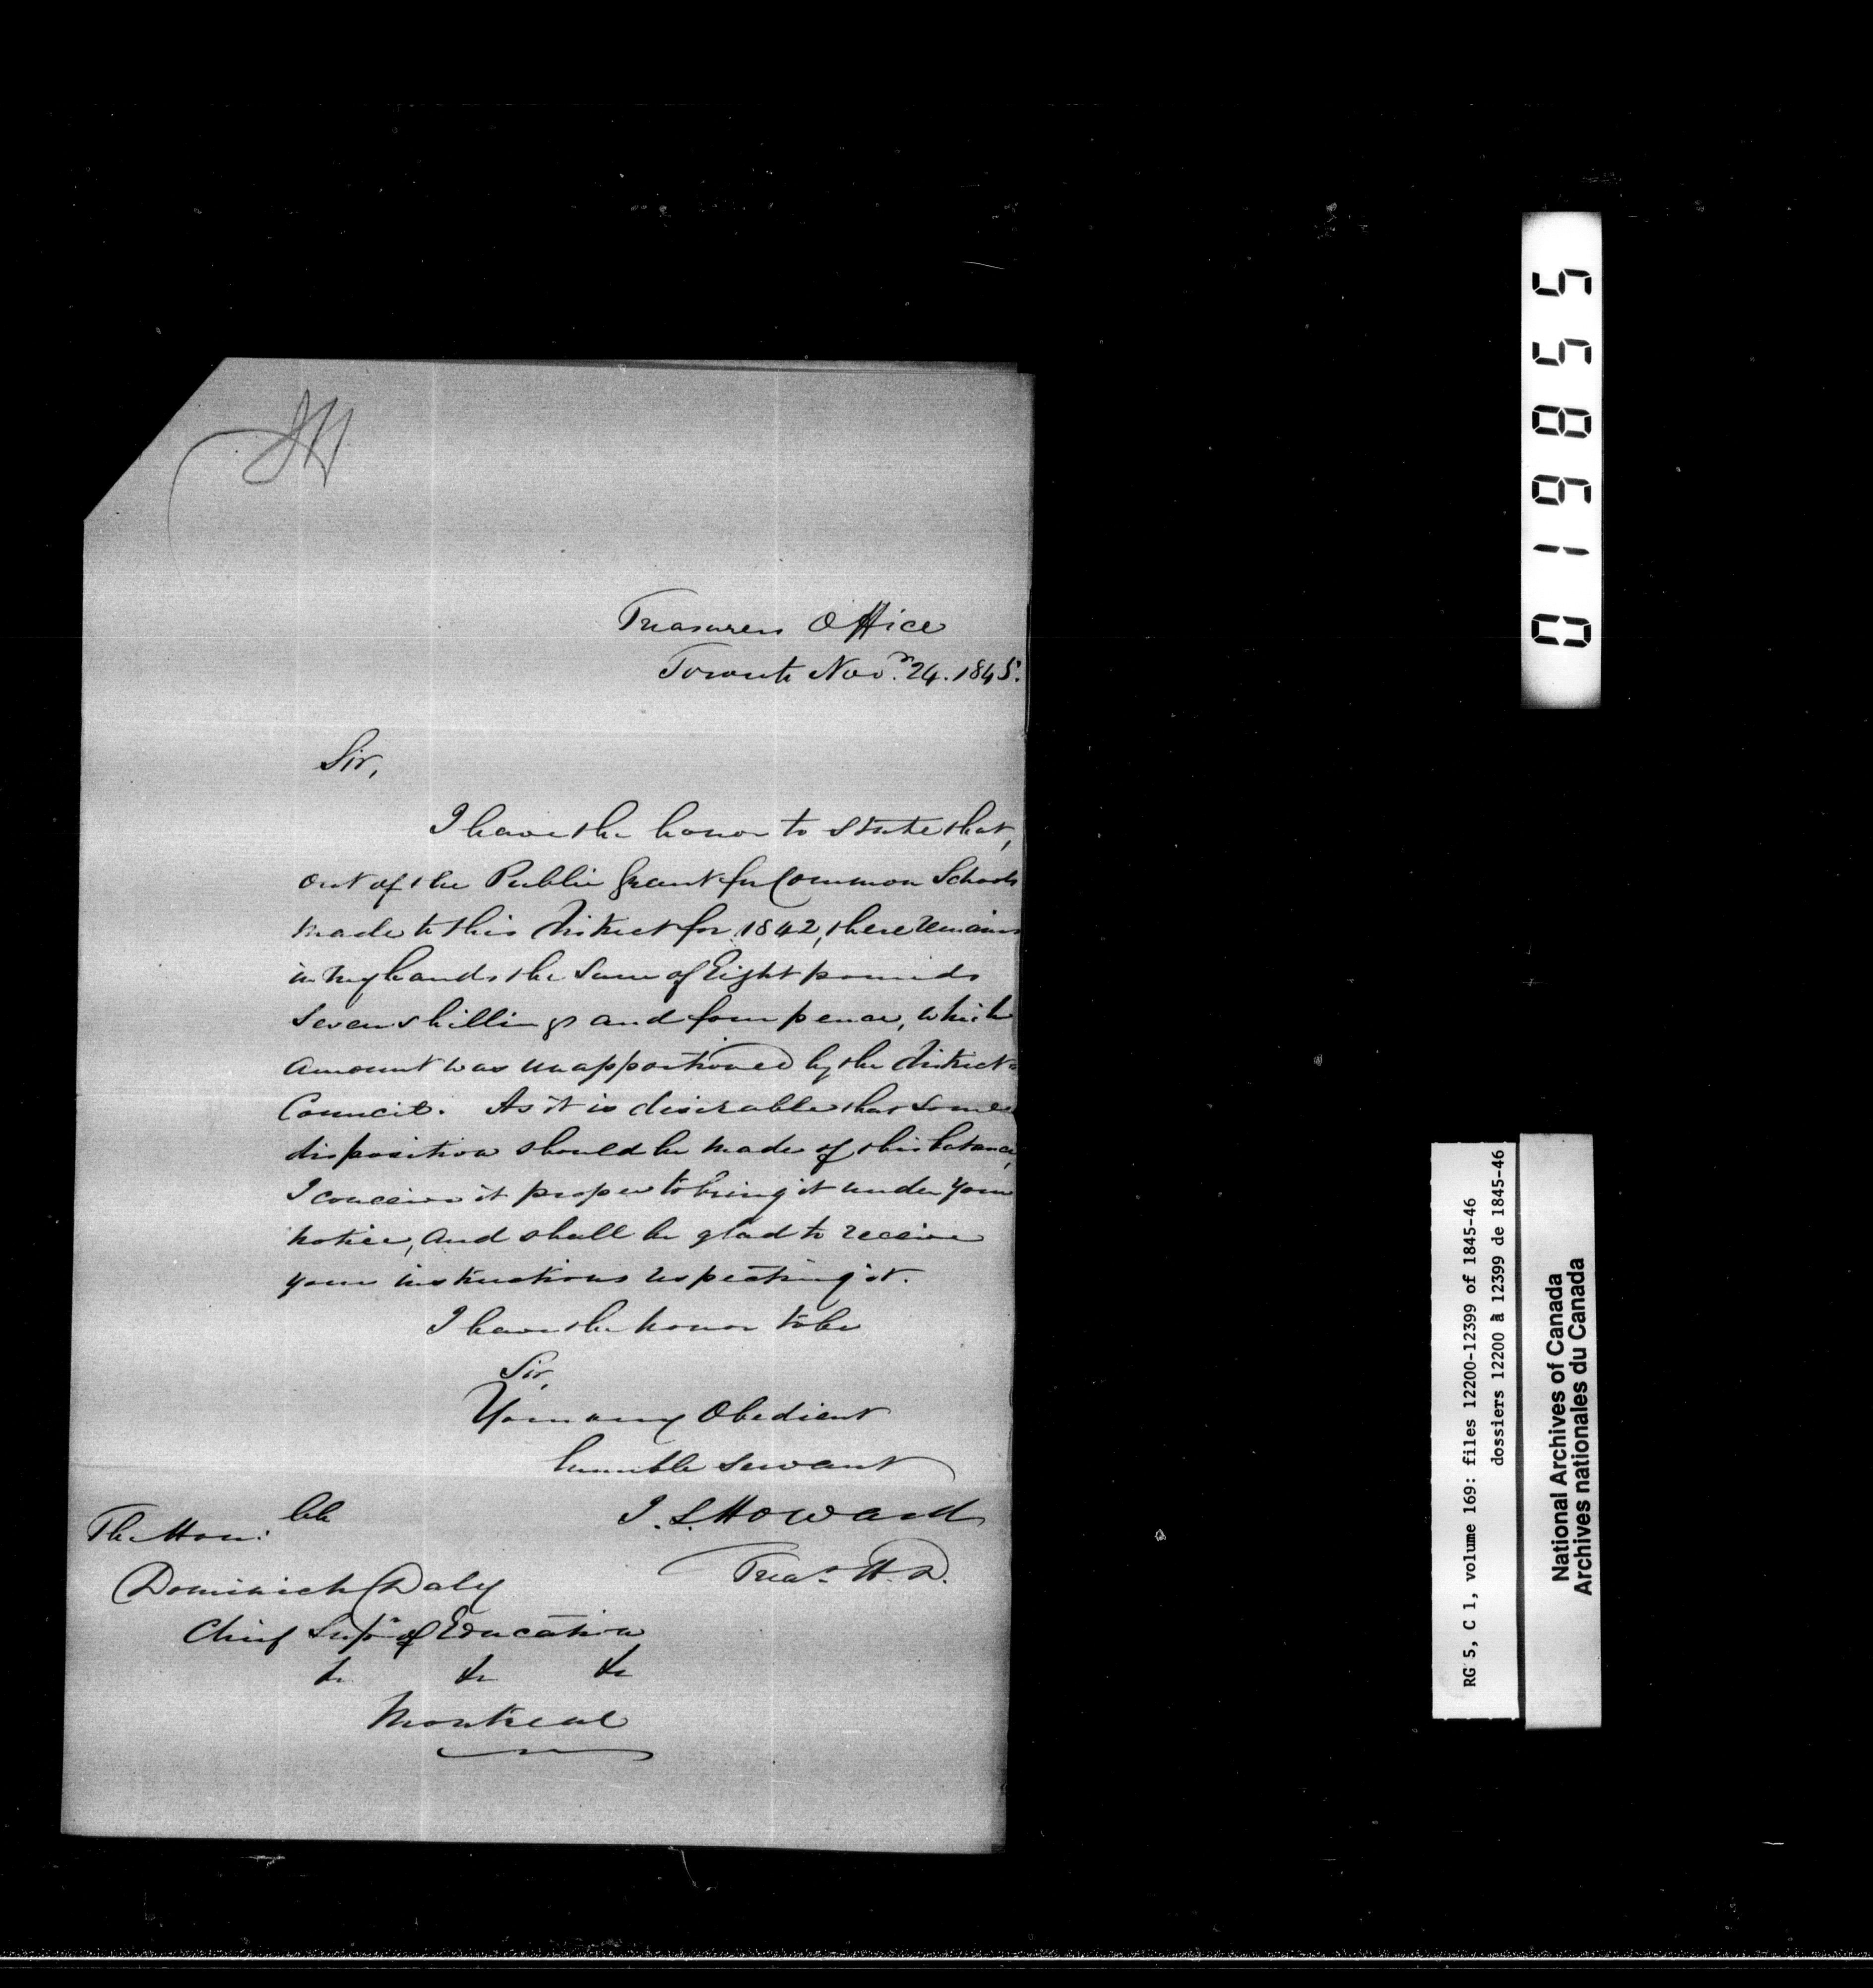 Treasurers Office
Toronto Nov.r 24. 1845.
Sir,
I have the honor to state that,
out of the Public Grant for Common Schools
made to this District for 1842, there remains
in my hands the Sum of Eight pounds
Seven shillings and four pence, which
amount was unapportioned by the District
Council. As it is desirable that some
disposition should be made of this balance,
I conceive it proper to bring it under your
notice, and shall be glad to receive
your instructions respecting it.
I have the honor to be
Sir,
Your very Obedient
humble servant
J. S. Howard
Treas. H. D.
The Hon:ble
Dominick Daly
Chief Supt. of Education
&c &c &c
Montreal
019855
RG 5, C 1, volume 169: files 12200-12399 of 1845-46
dossiers 12200 à 12399 de 1845-46
National Archives of Canada
Archives nationales du Canada